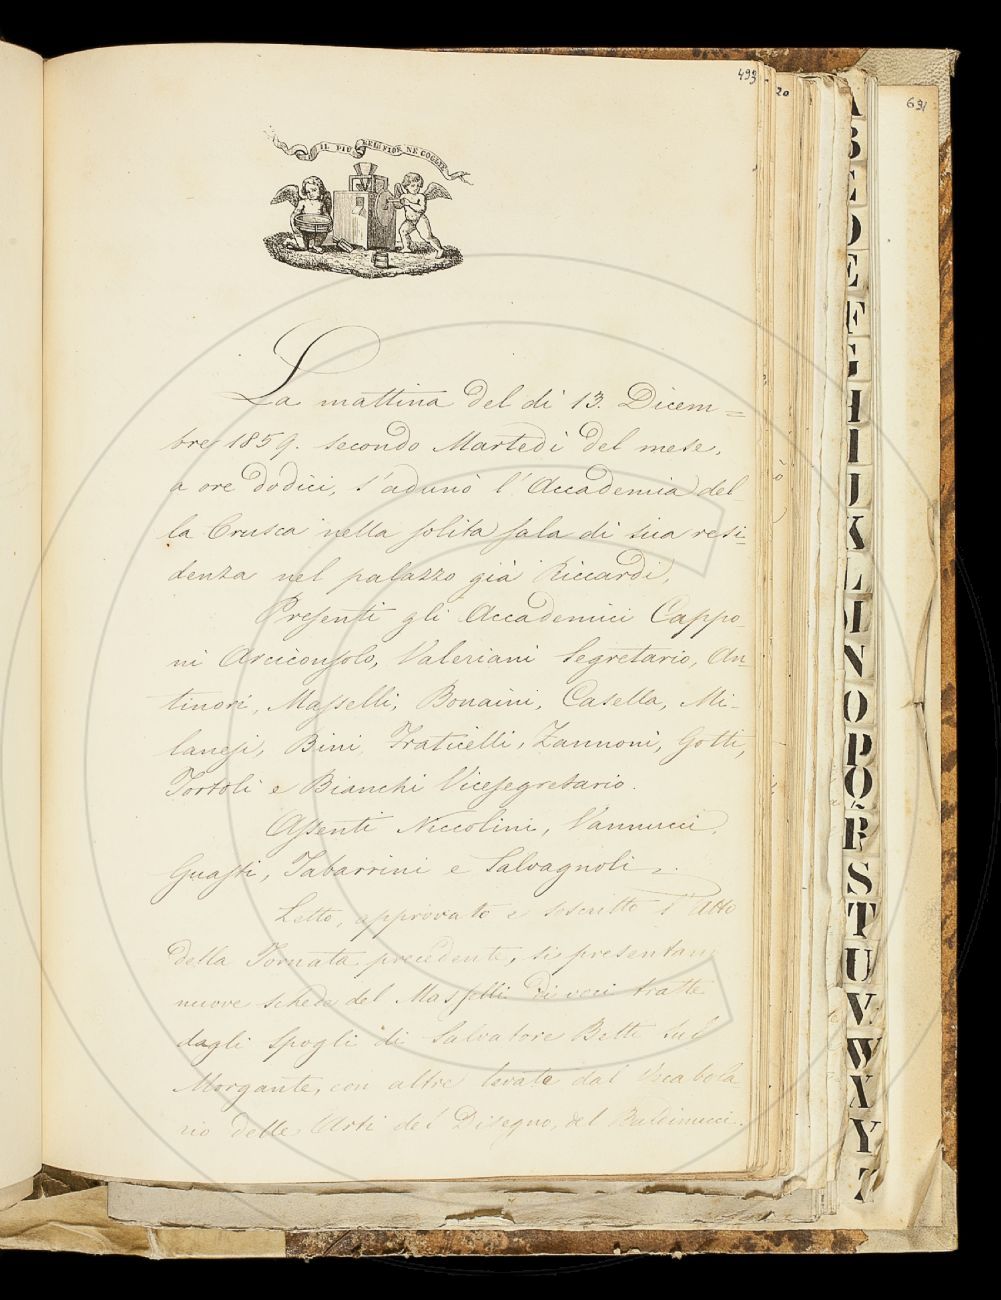 499
IL PIÙ BEL FIOR NE COGLIE
La mattina del dì 13. Dicem=
bre 1859. secondo Martedì del mese,
a ore dodici, s'adunò l'Accademia del
la Crusca nella solita sala di sua resi=
denza nel palazzo già Riccardi,
Presenti gli Accademici Cappo
ni Arciconsolo, Valeriani Segretario, An
tinori, Masselli, Bonaini, Casella, Mi-
lanesi, Bini, Fraticelli, Zannoni, Gotti,
Tortoli e Bianchi Vicesegretario.
Assenti Niccolini, Vannucci,
Guasti, Tabarrini e Salvagnoli.
Letto, approvato e soscritto l'Atto
della Tornata precedente, si presentan
nuove schede del Masselli di voci tratte
dagli spogli di Salvatore Betti sul
Morgante, con altre levate dal Vocabola
rio delle Arti del Disegno, del Baldinucci.
20
691
A
B
C
D
E
F
G
H
I
J
K
L
M
N
O
P
Q
R
S
T
U
V
W
X
Y
Z